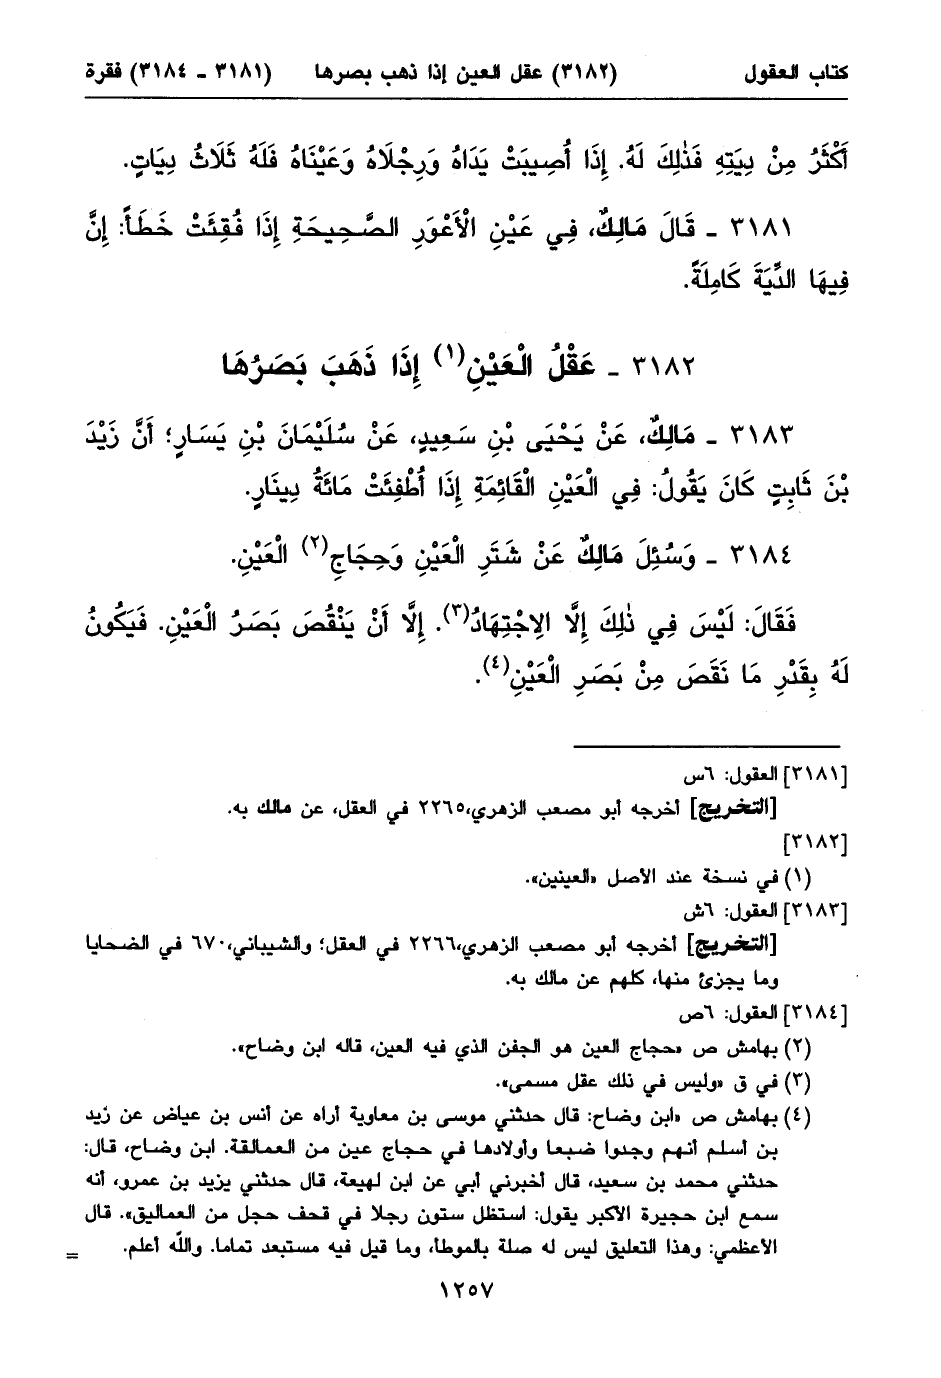 كتاب العقول (٣١٨٢) عقل العين إذا ذهب بصرها (٣١٨١ - ٣١٨٤) فقرة
أَكْثَرُ مِنْ دِيَتِهِ فَذٰلِكَ لَهُ. إِذَا أُصِيبَتْ يَدَاهُ وَرِجْلَاهُ وَعَيْنَاهُ فَلَهُ ثَلَاثُ دِيَاتٍ.
٣١٨١ - قَالَ مَالِكٌ، فِي عَيْنِ الْأَعْوَرِ الصَّحِيحَةِ إِذَا فُقِئَتْ خَطَأً: إِنَّ
فِيهَا الدِّيَةَ كَامِلَةً.
٣١٨٢ - عَقْلُ الْعَيْنِ(١) إِذَا ذَهَبَ بَصَرُهَا
٣١٨٣ - مَالِكٌ، عَنْ يَحْيَى بْنِ سَعِيدٍ، عَنْ سُلَيْمَانَ بْنِ يَسَارٍ؛ أَنَّ زَيْدَ
بْنَ ثَابِتٍ كَانَ يَقُولُ: فِي الْعَيْنِ الْقَائِمَةِ إِذَا أُطْفِئَتْ مَائَةُ دِينَارٍ.
٣١٨٤ - وَسُئِلَ مَالِكٌ عَنْ شَتَرِ الْعَيْنِ وَحِجَاجِ(٢) الْعَيْنِ.
فَقَالَ: لَيْسَ فِي ذٰلِكَ إِلَّا الِاجْتِهَادُ(٣). إِلَّا أَنْ يَنْقُصَ بَصَرُ الْعَيْنِ. فَيَكُونُ
لَهُ بِقَدْرِ مَا نَقَصَ مِنْ بَصَرِ الْعَيْنِ(٤).
[٣١٨١] العقول: ٦س
[التخريج] أخرجه أبو مصعب الزهري،٢٢٦٥ في العقل، عن مالك به.
[٣١٨٢]
(١) في نسخة عند الأصل «العينين».
[٣١٨٣] العقول: ٦ش
[التخريج] أخرجه أبو مصعب الزهري،٢٢٦٦ في العقل؛ والشيباني،٦٧٠ في الضحايا
وما يجزئ منها، كلهم عن مالك به.
[٣١٨٤] العقول: ٦ص
(٢) بهامش ص «حجاج العين هو الجفن الذي فيه العين، قاله ابن وضاح».
(٣) في ق «وليس في ذلك عقل مسمى».
(٤) بهامش ص «ابن وضاح: قال حدثني موسى بن معاوية أراه عن أنس بن عياض عن زيد
بن أسلم أنهم وجدوا ضبعا وأولادها في حجاج عين من العمالقة. ابن وضاح، قال:
حدثني محمد بن سعيد، قال أخبرني أبي عن ابن لهيعة، قال حدثني يزيد بن عمرو، أنه
سمع ابن حجيرة الأكبر يقول: استظل ستون رجلا في قحف حجل من العماليق». قال
الأعظمي: وهذا التعليق ليس له صلة بالموطأ، وما قيل فيه مستبعد تماما. والله أعلم. =
١٢٥٧